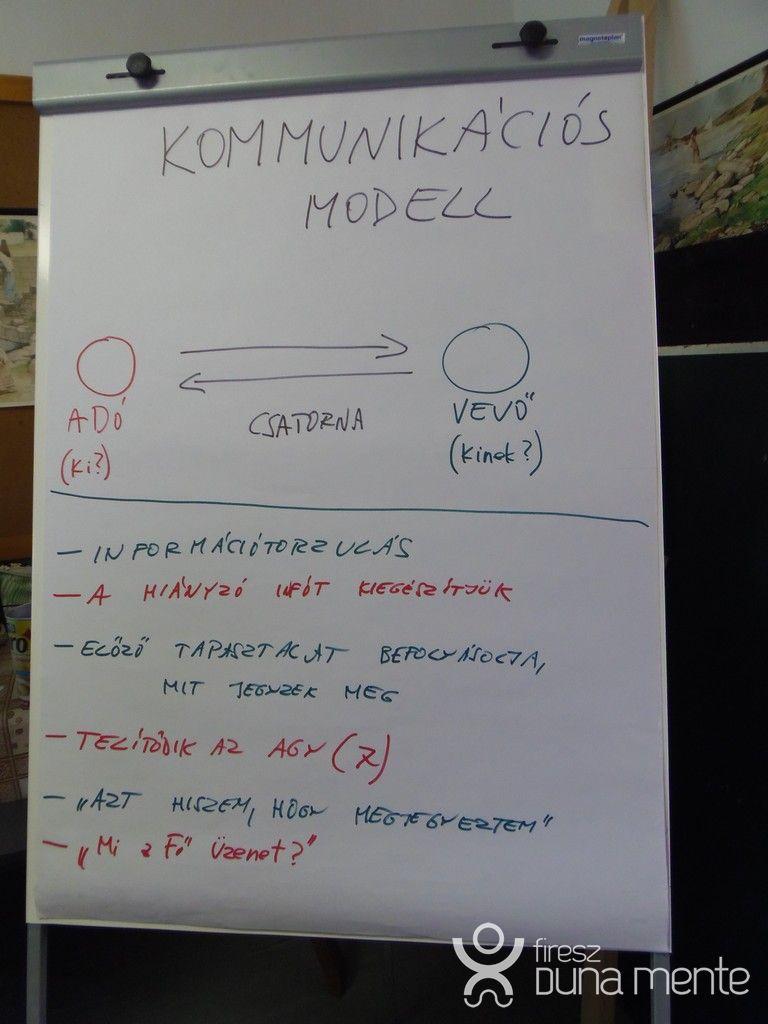 magnetoplan
KOMMUNIKÁCIÓS
MODELL
ADÓ
(Ki?)
CSATORNA
VEVŐ
(Kinek?)
— INFORMÁCIÓTORZULÁS
— A HIÁNYZÓ INFÓT KIEGÉSZÍTJÜK
— ELŐZŐ TAPASZTALAT BEFOLYÁSOLJA,
MIT JEGYZEK MEG
— TELÍTŐDIK AZ AGY (7)
— „AZT HISZEM, HOGY MEGJEGYEZTEM”
— „Mi a Fő üzenet?”
firesz
DUNA MENTE